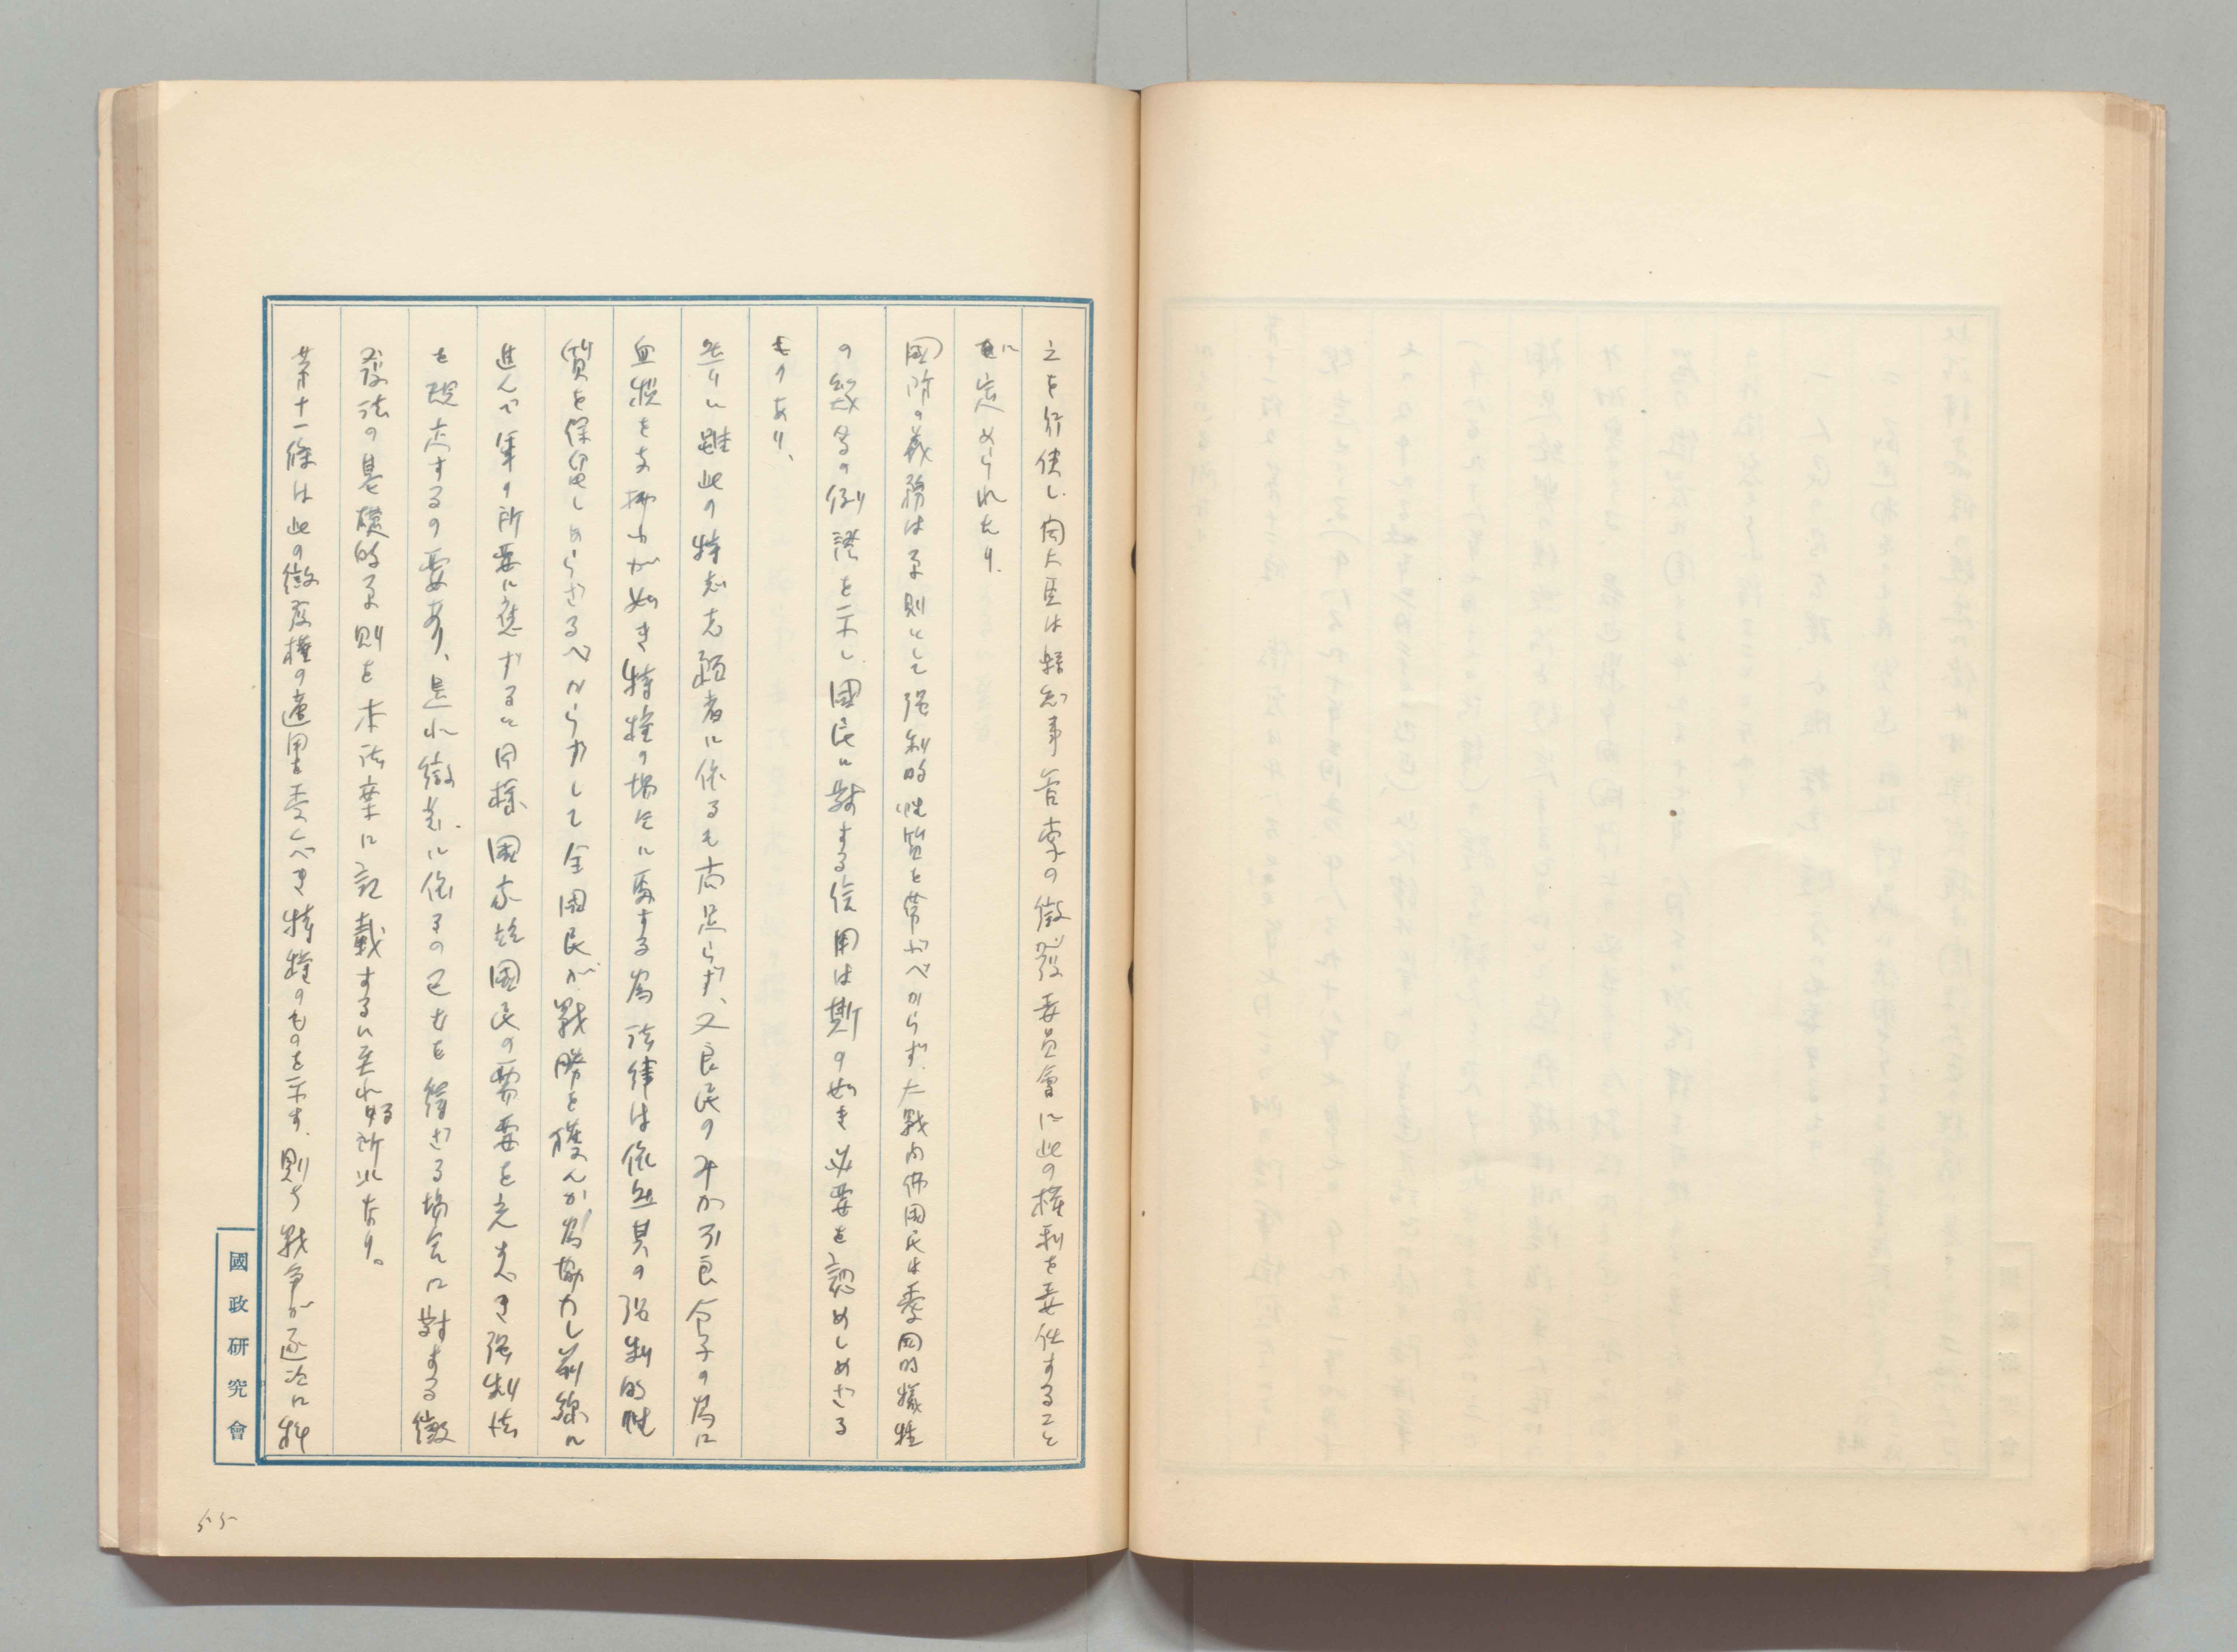 之を行使し、同大臣は縣知事管内の徴發委員會に此の権利を委任すること
に定められたり、
國防の義務は原則として强制的性質を帶ぶべからず、大戰内佛國民は愛國的犠牲
の幾多の例證を示し、國民に對する信用は斯の如き必要を認めしめざる
ものあり、
然りと雖此の特志志願者に依るも尚足らず、又良民のみが不良分子の為に
血税を支拂ふが如き特権の場合に要する為法律は依然其の强制的性
質を保留しめらざるべからずして全國民が戰勝を獲んが為協力し前線に
進んで軍の所要に應ずると同様國家於國民の需要を充すべき强制法
を規定するの要あり、是れ徴募に依るの已むを得ざる場合に對する徴
發法の基礎的原則を本法案に記載するに至れる所以なり。
第十一條は此の徴發権の適用を受くべき特権のものを示す、則ち戰争が逐次に特
國政研究會
55